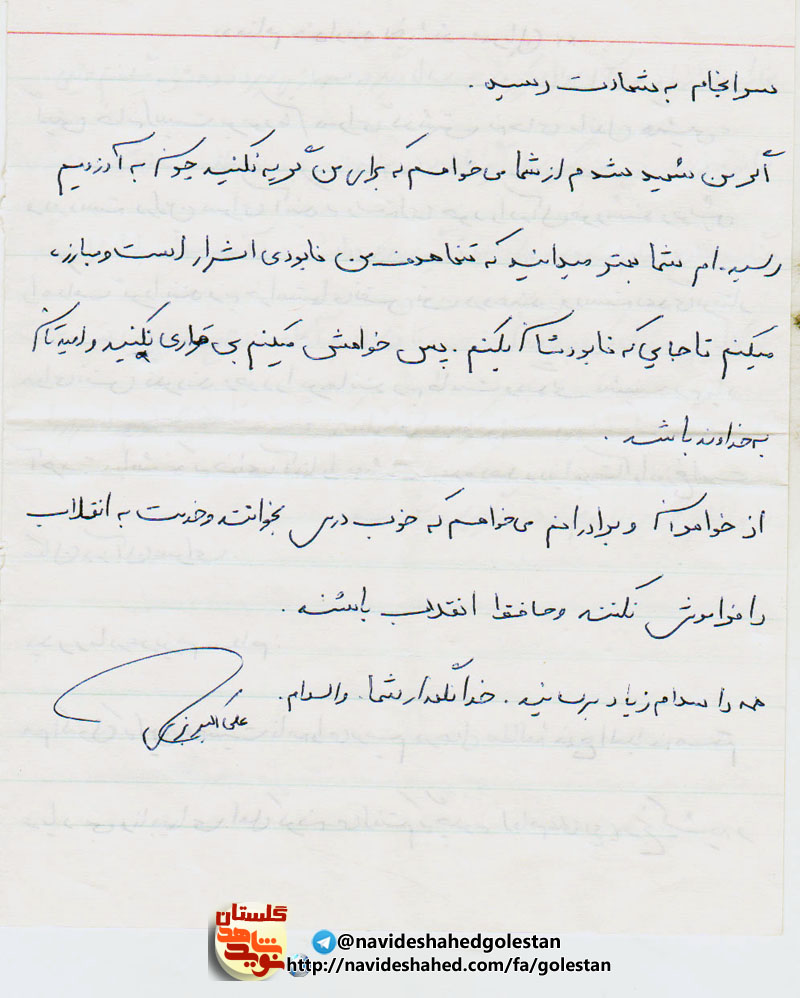 سرانجام به شهادت رسید .
اگر من شهید شدم از شما می خواهم که برای من گریه نکنید چون به آرزویم
رسیدم . شما بهتر میدانید که تنها هدف من نابودی اشرار است و مبارزه
میکنم تا جایی که نابودشان بکنم . پس خواهش میکنم بی قراری نکنید و امیدتان
به خداوند باشد .
از خواهران و برادرانم می خواهم که خوب درس بخوانند و خدمت به انقلاب
را فراموش نکنند و حافظ انقلاب باشند .
همه را سلام زیاد برسانید . خدانگهدار شما . والسلام .
علی اکبر
گلستان
نوید شاهد
@navideshahedgolestan
http://navideshahed.com/fa/golestan